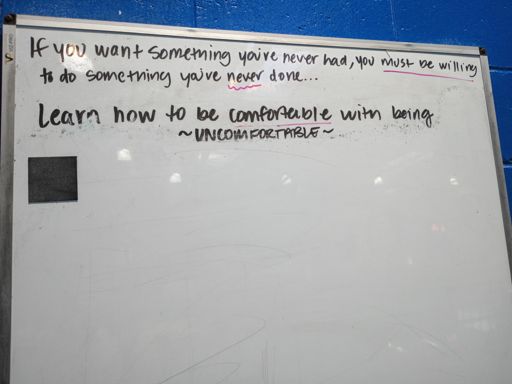 If you want something you've never had, you must be willing
to do something you've never done...
Learn how to be comfortable with being
~UNCOMFORTABLE~